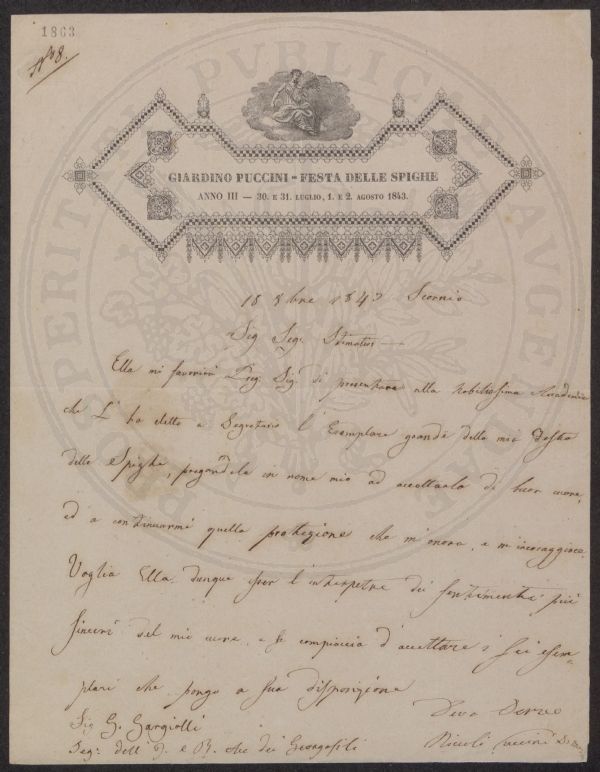 1863
N° 8.
GIARDINO PUCCINI = FESTA DELLE SPIGHE
ANNO III — 30. E 31. LUGLIO, 1. E 2. AGOSTO 1843.
18 8bre 1843 Scornio
Sig. Seg. Stimatiss
Ella mi favorirà Preg. Sig. di presentare alla Nobilissima Accademia
che L' ha eletto a Segretario l' Esemplare grande della mia Festa
delle Spighe, pregandola in nome mio ad accettarlo di buon cuore,
ed a continuarmi quella protezione che m' onora, e m' incoraggisce.
Voglia Ella dunque esser l' interpetre dei sentimenti più
sinceri del mio cuore, e si compiaccia d' accettare i sei esem-
plari che pongo a sua disposizione
Devo Servo
Sig G. Gargiolli
Niccolò Puccini
Seg. dell' I. e R. Acc dei Georgofili
PROSPERITATI PVBLICAE AVGENDAE